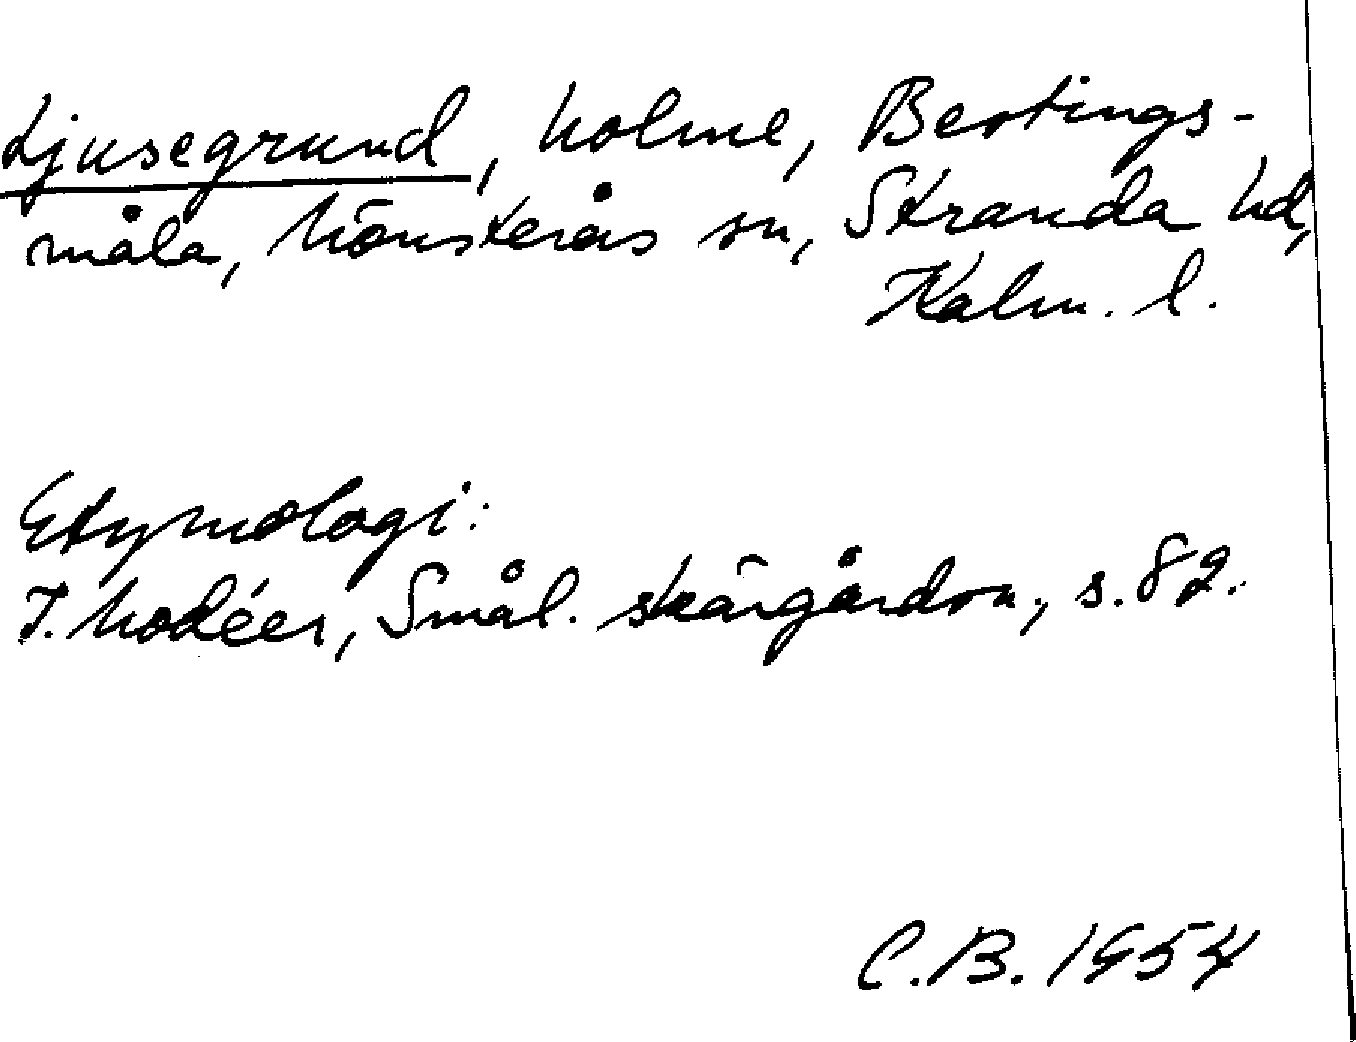 Ljusegrund, holme, Bertings-
måla, Mönsterås sn, Stranda hd,
Kalm. l.
Etymologi:
I. Modéer, Smål. skärgårdsn., s. 82.
C.B. 1954